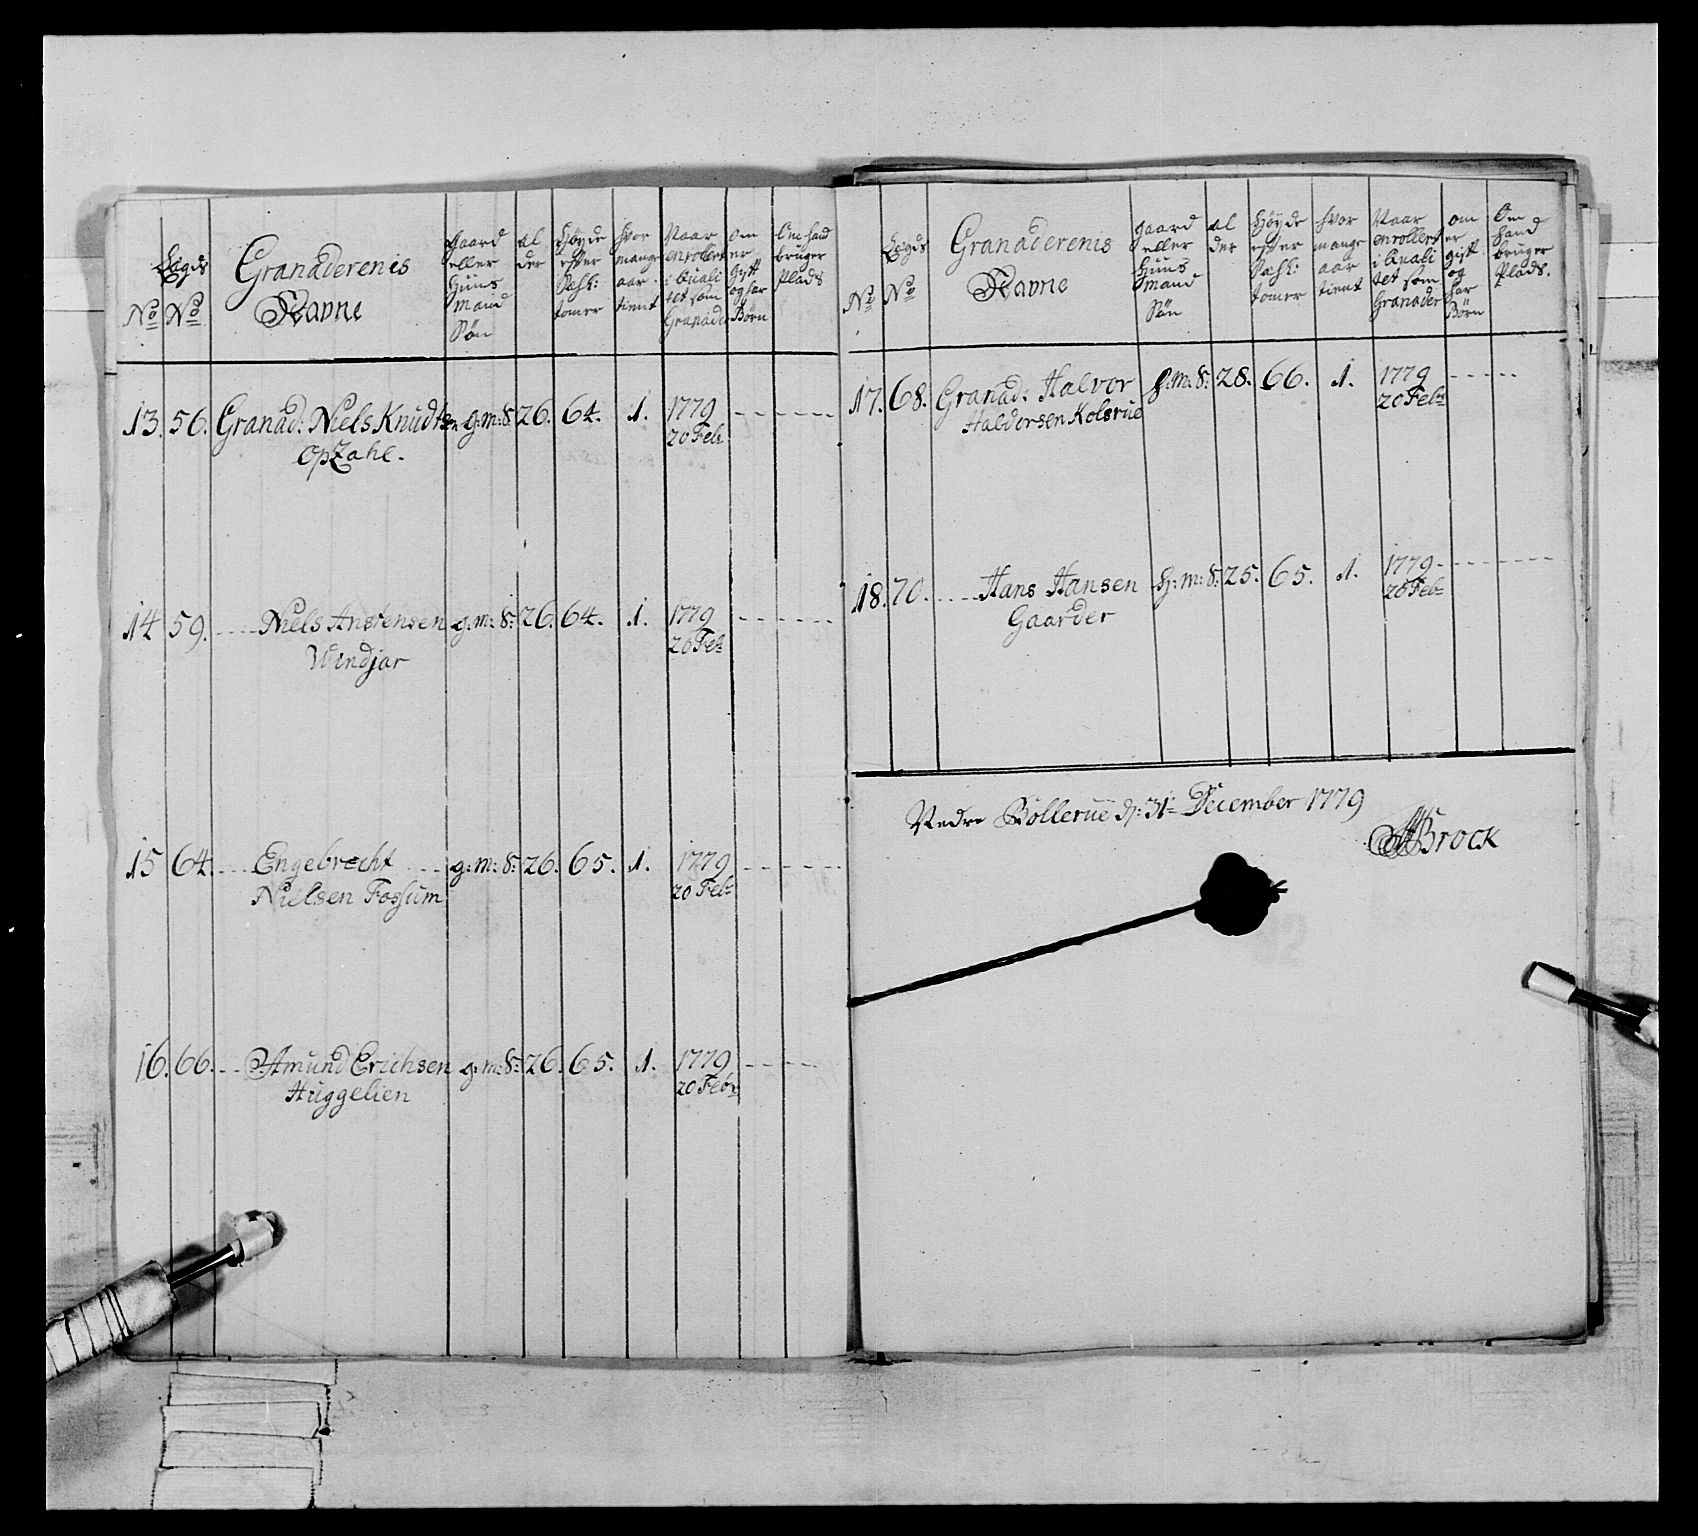 No
Lægds No
Granaderenis Navne
gaard eller Huus mand Søn
al der
Høyde efter Sask: tomer
hvor mange aar tient
Naar enrollert i Qvali tet som Granader
om er gift og har Børn
Om hand bruger Plads
13. 56. Granad: Niels Knudtsen g:m:S: 26. 64. 1. 1779
Opzahl. 20 Feb:
14 59. Niels Anstensen g:m:S: 26. 64. 1. 1779
Windjar 20 Feb:
15 64. Engebrecht g:m:S: 26. 65. 1. 1779
Nielsen Fossum 20 Feb:
16. 66. Amund Erichsen g:m:S: 26. 65. 1. 1779
Huggelien 20 Febr
No
Lægds No
Granaderenis Navne
gaard eller Huus mand Søn
al der
Høyde efter Sask: tomer
hvor mange aar tient
Naar enrollert i Qvali tet som Granader
om er gift og har Børn
Om hand bruger Plads.
17. 68. Granad: Halvor g:m:S: 28. 66. 1. 1779
Haldorsen Kolsrue 20 Feb:
18. 70. Hans Hansen H:m:S: 25. 65. 1. 1779
Gaarder 20 Feb:
Nedre Bollerue d: 31te December 1779
Brock